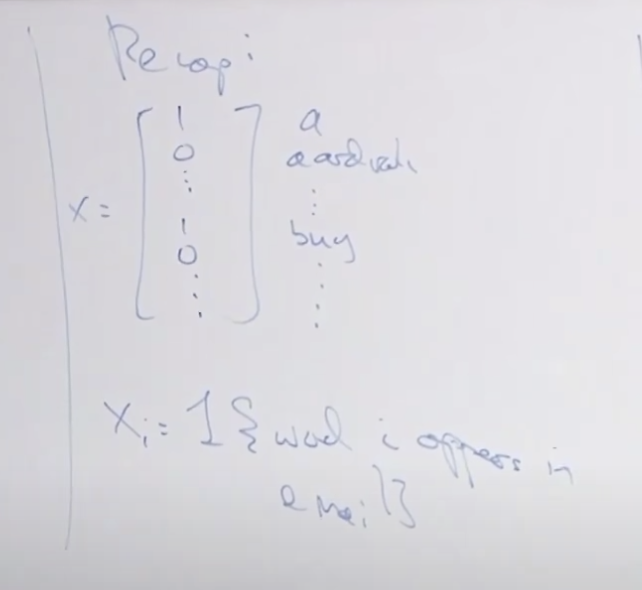 Recap:
x =
1
0
⋮
1
0
⋮
a
aardvark
⋮
buy
⋮
xᵢ = 1{word i appears in
email}